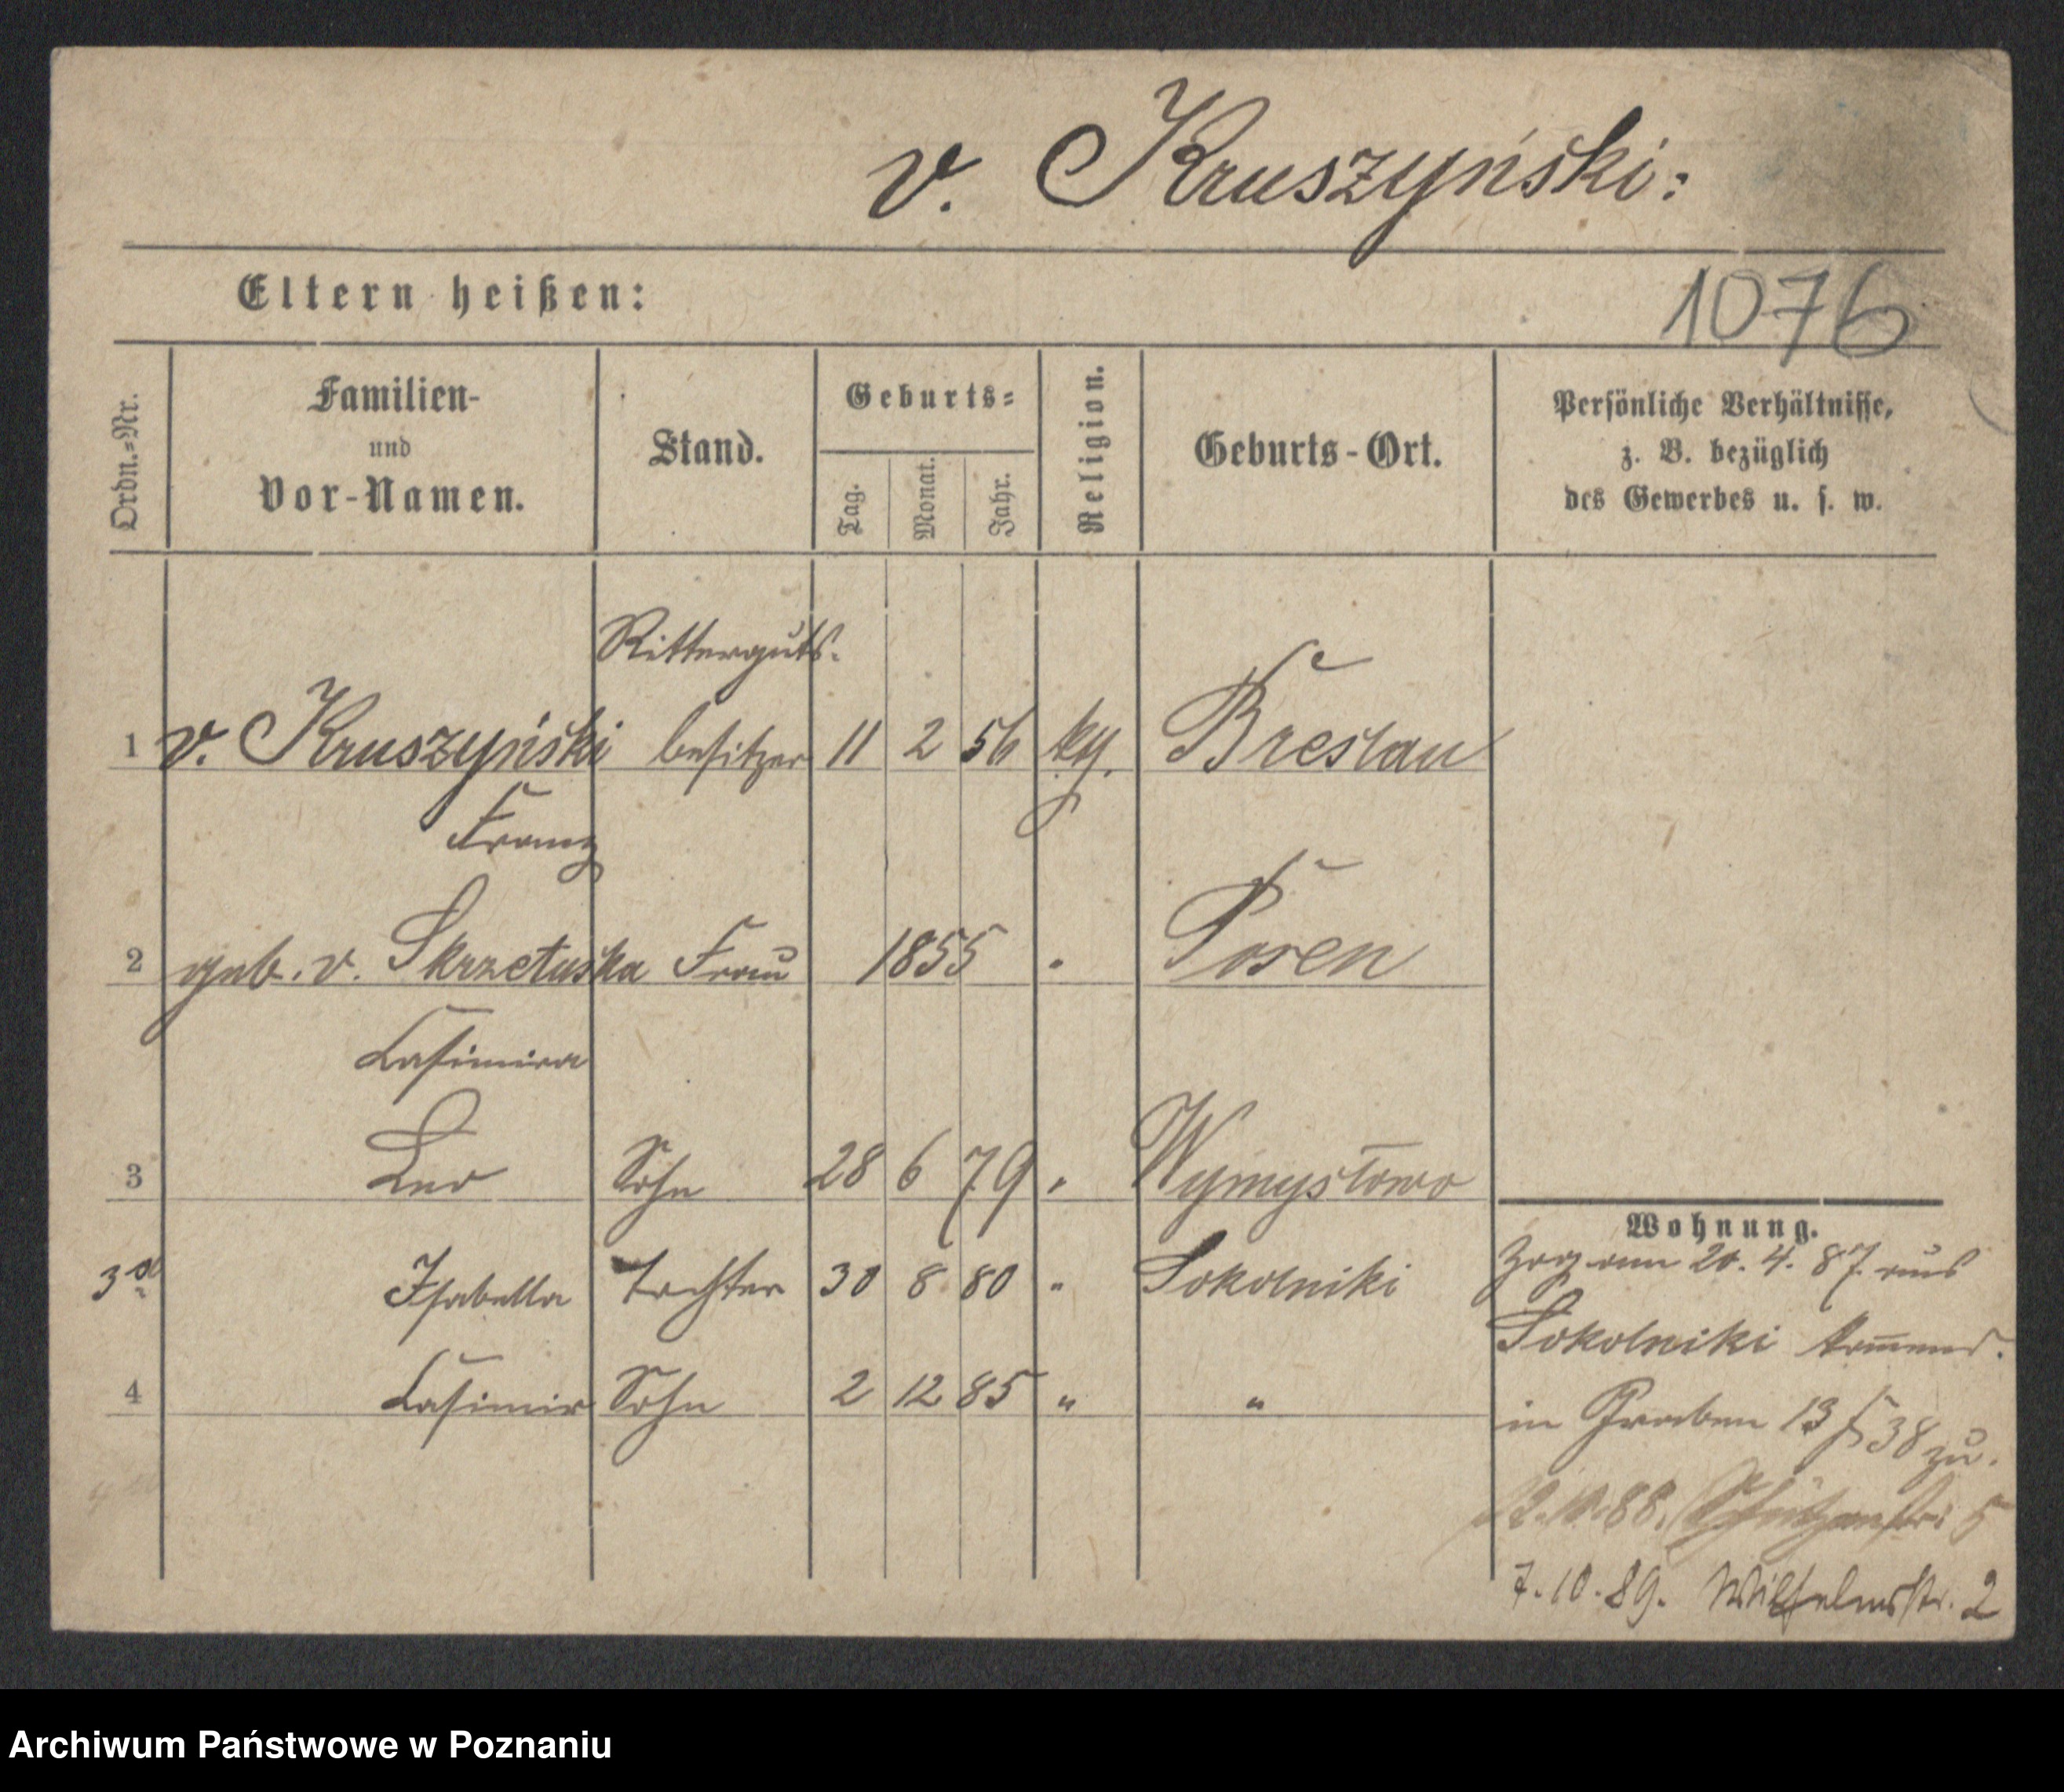 v. Kruszyński:
Eltern heißen:
1076
Ordn.=Nr.
Familien-
und
Vor-Namen.
Stand.
Geburts=
Tag.
Monat.
Jahr.
Religion.
Geburts-Ort.
Persönliche Verhältnisse,
z. B. bezüglich
des Gewerbes u. s. w.
Ritterguts-
1 v. Kruszyński besitzer 11 2 56 Breslau
Franz
2 geb. v. Skrzetuska Frau 1855 " Posen
Casimira
3 Leo Sohn 28 6 79 " Wymysłowo
3a Isabella Tochter 30 8 80 " Sokolniki
4 Casimir Sohn 2 12 85 " "
Wohnung.
Zog am 20. 4. 87. aus
Sokolniki kommend.
in Graben 13 38 zu.
88. Schützenstr: 5
7.10.89. Wilhelmstr. 2
Archiwum Państwowe w Poznaniu